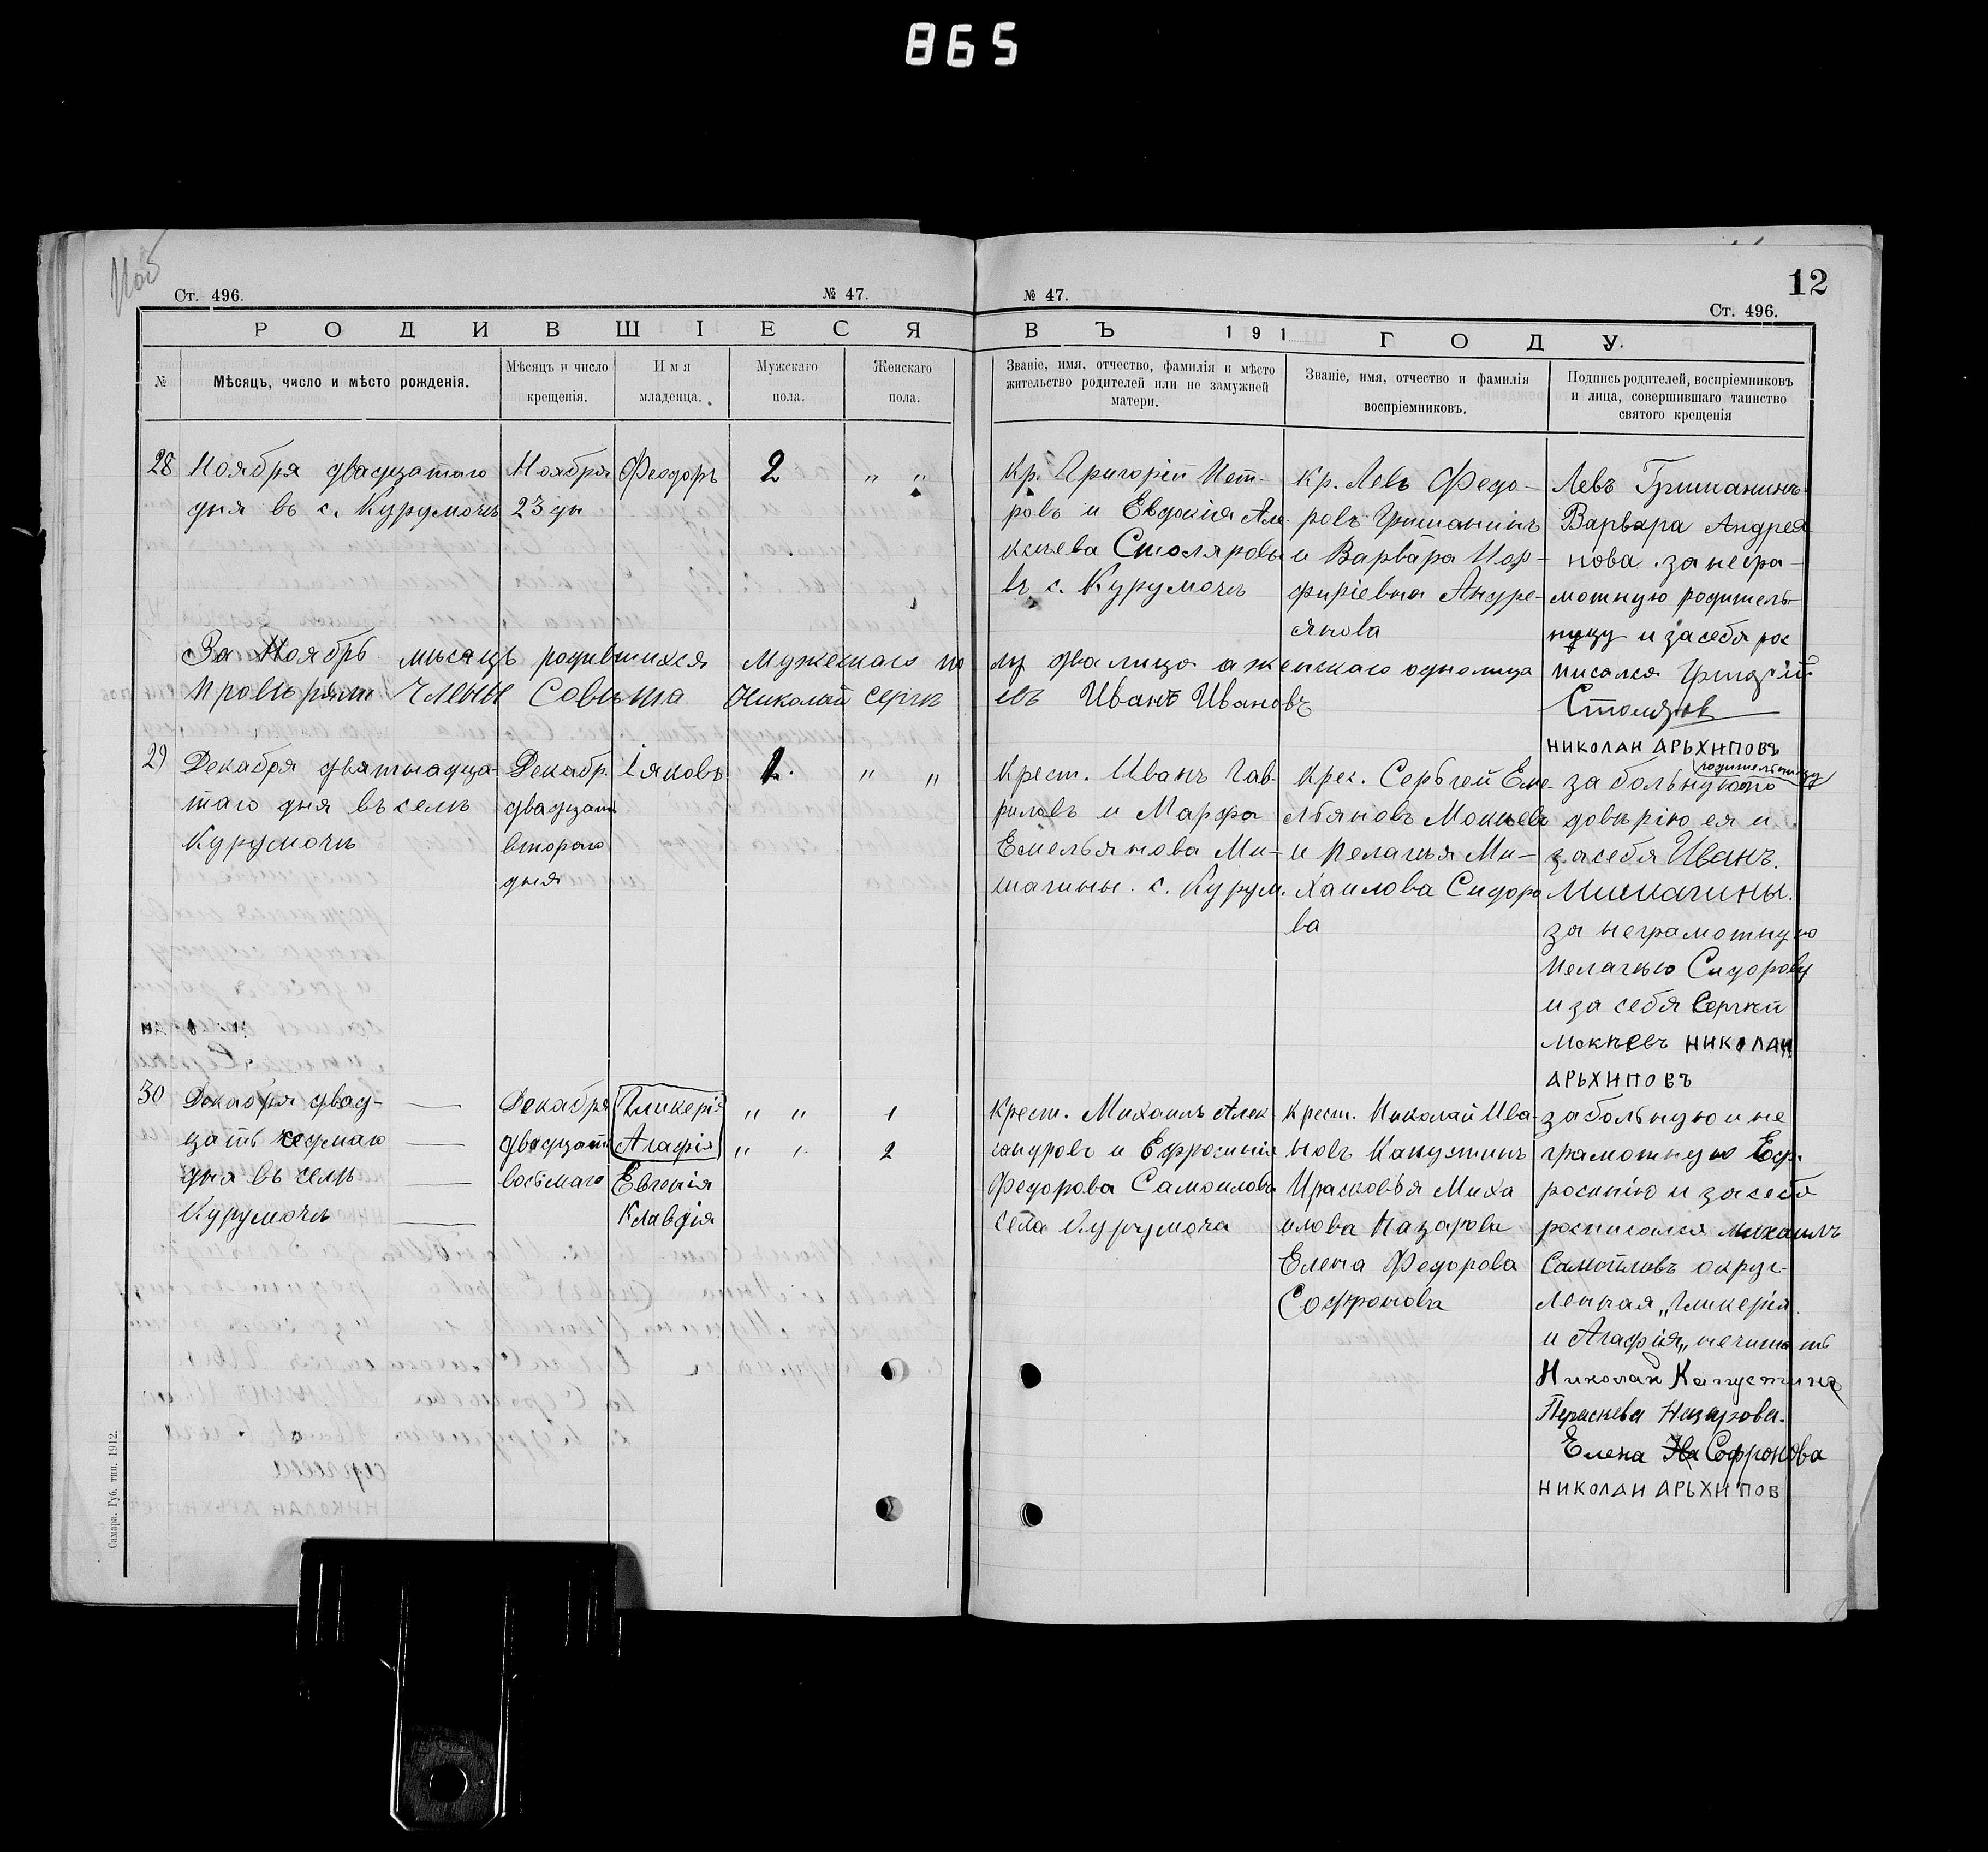 865
Ноя
12
Ст. 496.
№ 47.
№ 47.
Ст. 496.
РОДИВШІЕСЯ
ВЪ 191 ГОДУ.
№
Мѣсяцъ, число и мѣсто рожденія.
Мѣсяцъ и число
крещенія.
Имя
младенца.
Мужскаго
пола.
Женскаго
пола.
Званіе, имя, отчество, фамилія и мѣсто
жительство родителей или не замужней
матери.
Званіе, имя, отчество и фамилія
воспріемниковъ.
Подпись родителей, воспріемниковъ
и лица, совершившаго таинство
святого крещенія
28
Ноября двадцатаго
дня въ с. Курумочѣ
Ноября
23 дн
Феодоръ
2
" "
Кр. Григорій Пет-
ровъ и Евдокія Але
ксѣева Столяровы
въ с. Курумочѣ
Кр. Левъ Федо-
ровъ Гришанинъ
и Варвара Пор-
фиріевна Андре-
янова
Левъ Гришанинъ.
Варвара Андрея
нова. за негра-
мотную родитель-
ницу и за себя рос
писался Григорій
Столяров
НИКОЛАИ АРЬХИПОВЪ
За Ноябрь мѣсяцъ родившихся мужескаго по лу два лица а женскаго одно лица
Провѣряли Члены Совѣта Николай Сергѣ евъ Иванъ Ивановъ
29
Декабря двятнадца-
таго дня въ селѣ
Курумочѣ
Декабр.
двадцат
второго
дня
Іяковъ
1.
" "
Крест. Иванъ Гав-
риловъ и Марфа
Емельянова Ми-
шагины. с. Курум.
Крес. Сергѣей Еме-
льяновъ Мокѣевъ
и Пелагѣя Ми-
хаилова Сидоро
ва
родительницу
за больную по
довѣрію ея и
за себя Иванъ.
Мишагины.
за неграмотную
Пелагѣю Сидорову
и за себя Сергѣй
Мокѣевъ НИКОЛАИ
АРЬХИПОВЪ
30
Декабря двад-
цать седмаго
дня въ селѣ
Курумочѣ
Декабря
двадцат
восьмаго
Гликерія
Агафія
Евгенія
Клавдія
" " 1
" " 2
Крест. Михаилъ Алек-
сандровъ и Ефросинія
Федорова Самоиловы
села Курумоча
Крест. Николай Ива-
новъ Капустинъ
Прасковья Миха
илова Назарова
Елена Федорова
Софронова
за больную и не
грамотную Еф-
росинію и за себя
росписался Михаилъ
Самоиловъ округ-
ленная „Гликерія
и Агафія„ нечитать
Николай Капустинъ
Пераскева Назарова.
Елена Софронова
НИКОЛАИ АРЬХИПОВ
Самара. Губ. тип. 1912.